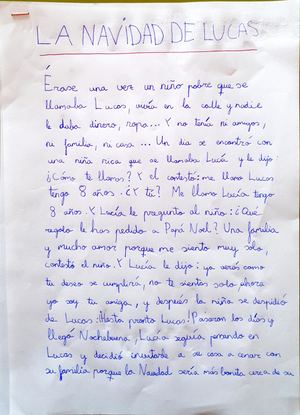 LA NAVIDAD DE LUCAS
Érase una vez un niño pobre que se
llamaba Lucas, vivía en la calle y nadie
le daba dinero, ropa... Y no tenía ni amigos,
ni familia, ni casa... Un día se encontró con
una niña rica que se llamaba Lucía y le dijo:
¿Cómo te llamas? Y el contestó: me llamo Lucas
tengo 8 años. ¿Y tú? Me llamo Lucía tengo
8 años. Y Lucía le pregunto al niño: ¿Qué
regalo le has pedido a Papá Noel? Una familia
y mucho amor porque me siento muy solo,
contestó el niño. Y Lucía le dijo: ya verás como
tu deseo se cumplirá, no te sientas solo ahora
yo soy tu amiga, y después la niña se despidió
de Lucas: ¡Hasta pronto Lucas! Pasaron los días y
llegó Nochebuena, Lucía seguía pensando en
Lucas y decidió invitarle a su casa a cenar con
su familia porque la Navidad sería más bonita cerca de su